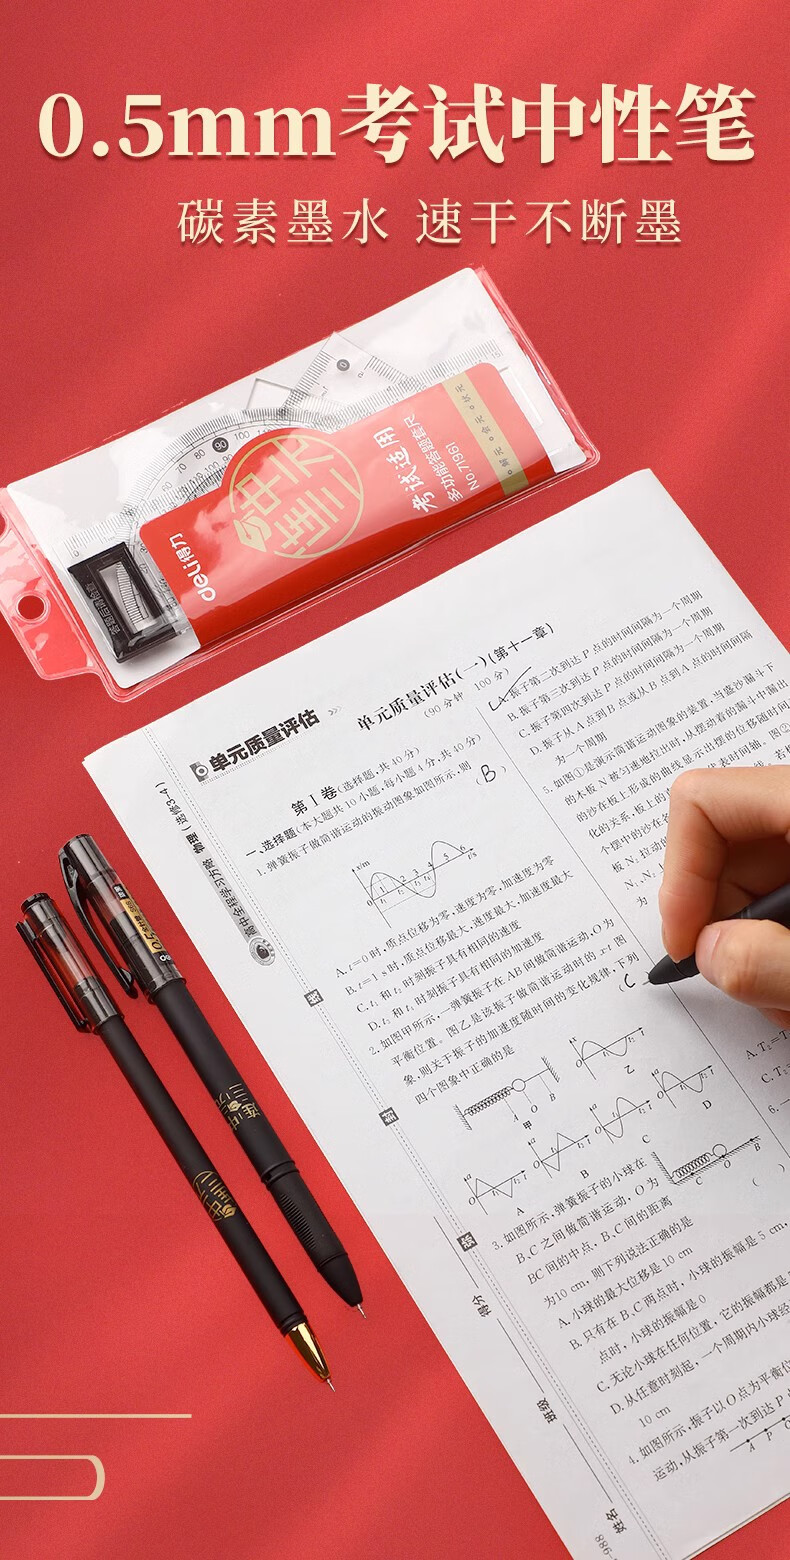 0.5mm考试中性笔
碳素墨水 速干不断墨
deli得力
连中三元
考试适用
多功能答题套尺
NO.71961
解元·会元·状元
答题后请检查
单元质量评估
单元质量评估(一)(第十一章)
(90分钟 100分)
第Ⅰ卷(选择题,共40分)
一、选择题(本大题共10小题,每小题4分,共40分)
1.弹簧振子做简谐运动的振动图象如图所示,则
( B )
x/m
0 1 2 3 4 5 6 t/s
A.t=0时,质点位移为零,速度为零,加速度为零
B.t=1 s时,质点位移最大,速度最大,加速度最大
C.t₁和t₂时刻振子具有相同的速度
D.t₁和t₂时刻振子具有相同的加速度
2.如图甲所示,一弹簧振子在AB间做简谐运动,O为
平衡位置。图乙是该振子做简谐运动时的x-t图
象,则关于振子的加速度随时间的变化规律,下列
四个图象中正确的是
( C
A O B
甲
乙
A
B
C
D
3.如图所示,弹簧振子的小球在
B、C之间做简谐运动,O为
BC间的中点,B、C间的距离
为10 cm,则下列说法正确的是
( )
C O B
A.小球的最大位移是10 cm
B.只有在B、C两点时,小球的振幅是5 cm,
点时,小球的振幅是0
C.无论小球在任何位置,它的振幅都是
D.从任意时刻起,一个周期内小球经
10 cm
4.如图所示,振子以O点为平衡位
运动,从振子第一次到达P
A P
A.振子第二次到达P点的时间间隔为一个周期
B.振子第三次到达P点的时间间隔为一个周期
C.振子第四次到达P点的时间间隔为一个周期
D.振子从A点到B点或从B点到A点的时间间隔
为一个周期
5.如图①是演示简谐运动图象的装置,当盛沙漏斗下
的木板N被匀速地拉出时,从摆动着的漏斗中漏出
的沙在板上形成的曲线显示出摆的位移随时间
化的关系,板上的
代表时间轴。图②
个摆中的沙在各
板N₁拉动的
N₁、N₂
为
A.T₂=T
C.T₂=
6.
高中全程学习方略 物理(选修3-4)
得分
班级
姓名
-988
0.5
连中三元
连中三元